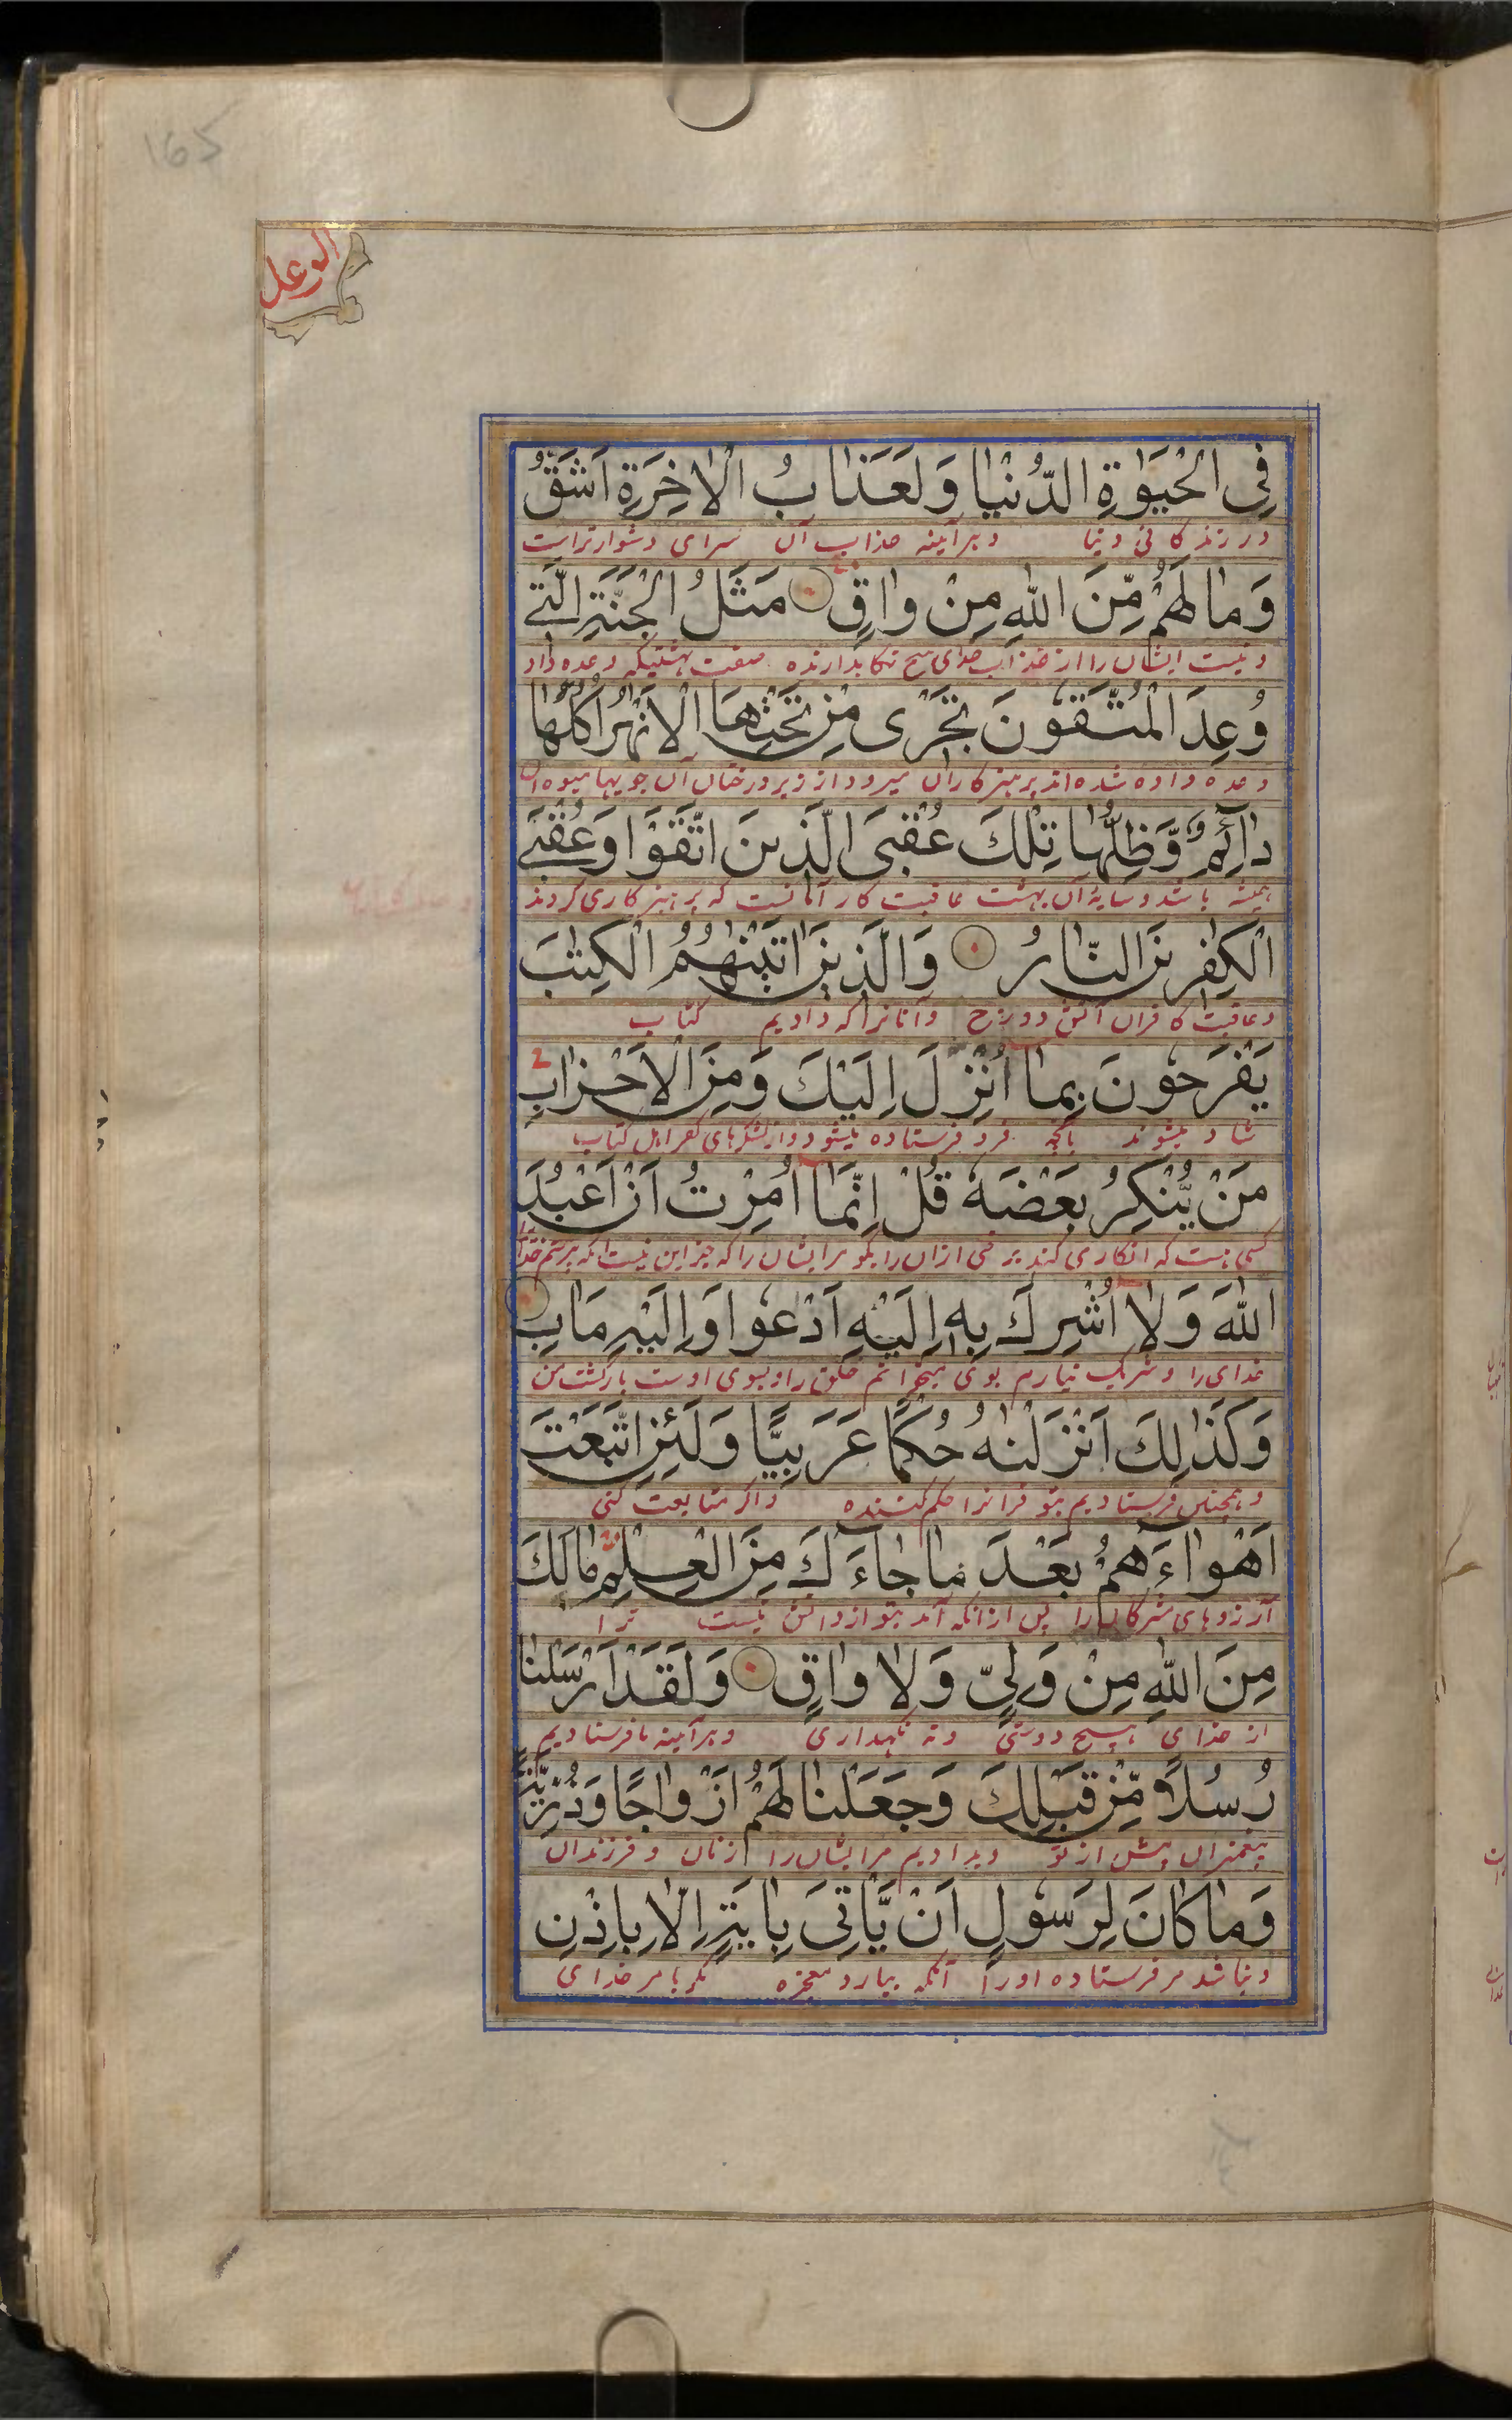 165
الرعد
فِى الْحَيٰوةِ الدُّنْيَا وَلَعَذَابُ الْاٰخِرَةِ اَشَقُّ
در زندكانى دنيا وهرآينه عذاب آن سراى دشوارتراست
وَمَا لَهُمْ مِّنَ اللهِ مِنْ وَاقٍ مَثَلُ الْجَنَّةِ الَّتِى
ونيست ايشان را از عذاب خداى هيچ نكاهدارنده صفت بهشتيكه وعده داد
وُعِدَ الْمُتَّقُونَ تَجْرِى مِنْ تَحْتِهَا الْاَنْهٰرُ اُكُلُهَا
وعده داده شده اند پرهيزكاران ميرود از زير درختان آن جويها ميوه آن
دَآئِمٌ وَّظِلُّهَا تِلْكَ عُقْبَى الَّذِينَ اتَّقَوْا وَعُقْبَى
هميشه باشد وسايۀ آن بهشت عاقبت كار آنانست كه پرهيزكارى كردند
الْكٰفِرِينَ النَّارُ وَالَّذِينَ اٰتَيْنٰهُمُ الْكِتٰبَ
وعاقبت كافران آتش دوزخ وآنانرا كه داديم كتاب
يَفْرَحُونَ بِمَا اُنْزِلَ اِلَيْكَ وَمِنَ الْاَحْزَابِ
شاد ميشوند بآنچه فرو فرستاده ميشود واز لشكرهاى كفر اهل كتاب
مَنْ يُّنْكِرُ بَعْضَهٗ قُلْ اِنَّمَا اُمِرْتُ اَنْ اَعْبُدَ
كسى هست كه انكار مى كند برخى ازان را بكو مر ايشان را كه جز اين نيست كه پرستم خدا
اللهَ وَلَا اُشْرِكَ بِهٖ اِلَيْهِ اَدْعُوا وَاِلَيْهِ مَاٰبِ
خداى را وشريك نيارم بوى ميخوانم خلق را وبسوى اوست باركشت من
وَكَذٰلِكَ اَنْزَلْنٰهُ حُكْمًا عَرَبِيًّا وَلَئِنِ اتَّبَعْتَ
وهمچنين فرستاديم بتو قرانرا حكم كننده واكر متابعت كنى
اَهْوَآءَهُمْ بَعْدَ مَا جَآءَكَ مِنَ الْعِلْمِ مَالَكَ
آرزوهاى مشركان را پس ازانكه آمد بتو از دانش نيست ترا
مِنَ اللهِ مِنْ وَلِىٍّ وَلَا وَاقٍ وَلَقَدْ اَرْسَلْنَا
از خداى هيچ دوستى ونه نكهدارى وهرآينه ما فرستاديم
رُسُلًا مِّنْ قَبْلِكَ وَجَعَلْنَا لَهُمْ اَزْوَاجًا وَّذُرِّيَّةً
پيغمبران پيش از تو وبداديم مر ايشان را زنان وفرزندان
وَمَا كَانَ لِرَسُولٍ اَنْ يَّاْتِىَ بِاٰيَةٍ اِلَّا بِاِذْنِ
ونباشد مر فرستاده اورا آنكه بيارد معجزه مكر بامر خداى